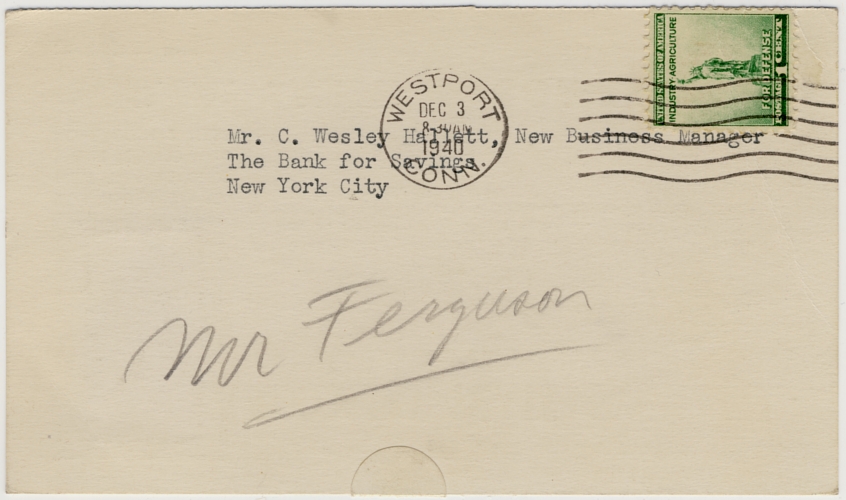 UNITED STATES OF AMERICA
INDUSTRY AGRICULTURE
FOR DEFENSE
POSTAGE 1 CENT
WESTPORT
DEC 3
8-30AM
1940
CONN.
Mr. C. Wesley Hallett, New Business Manager
The Bank for Savings
New York City
Mr Ferguson